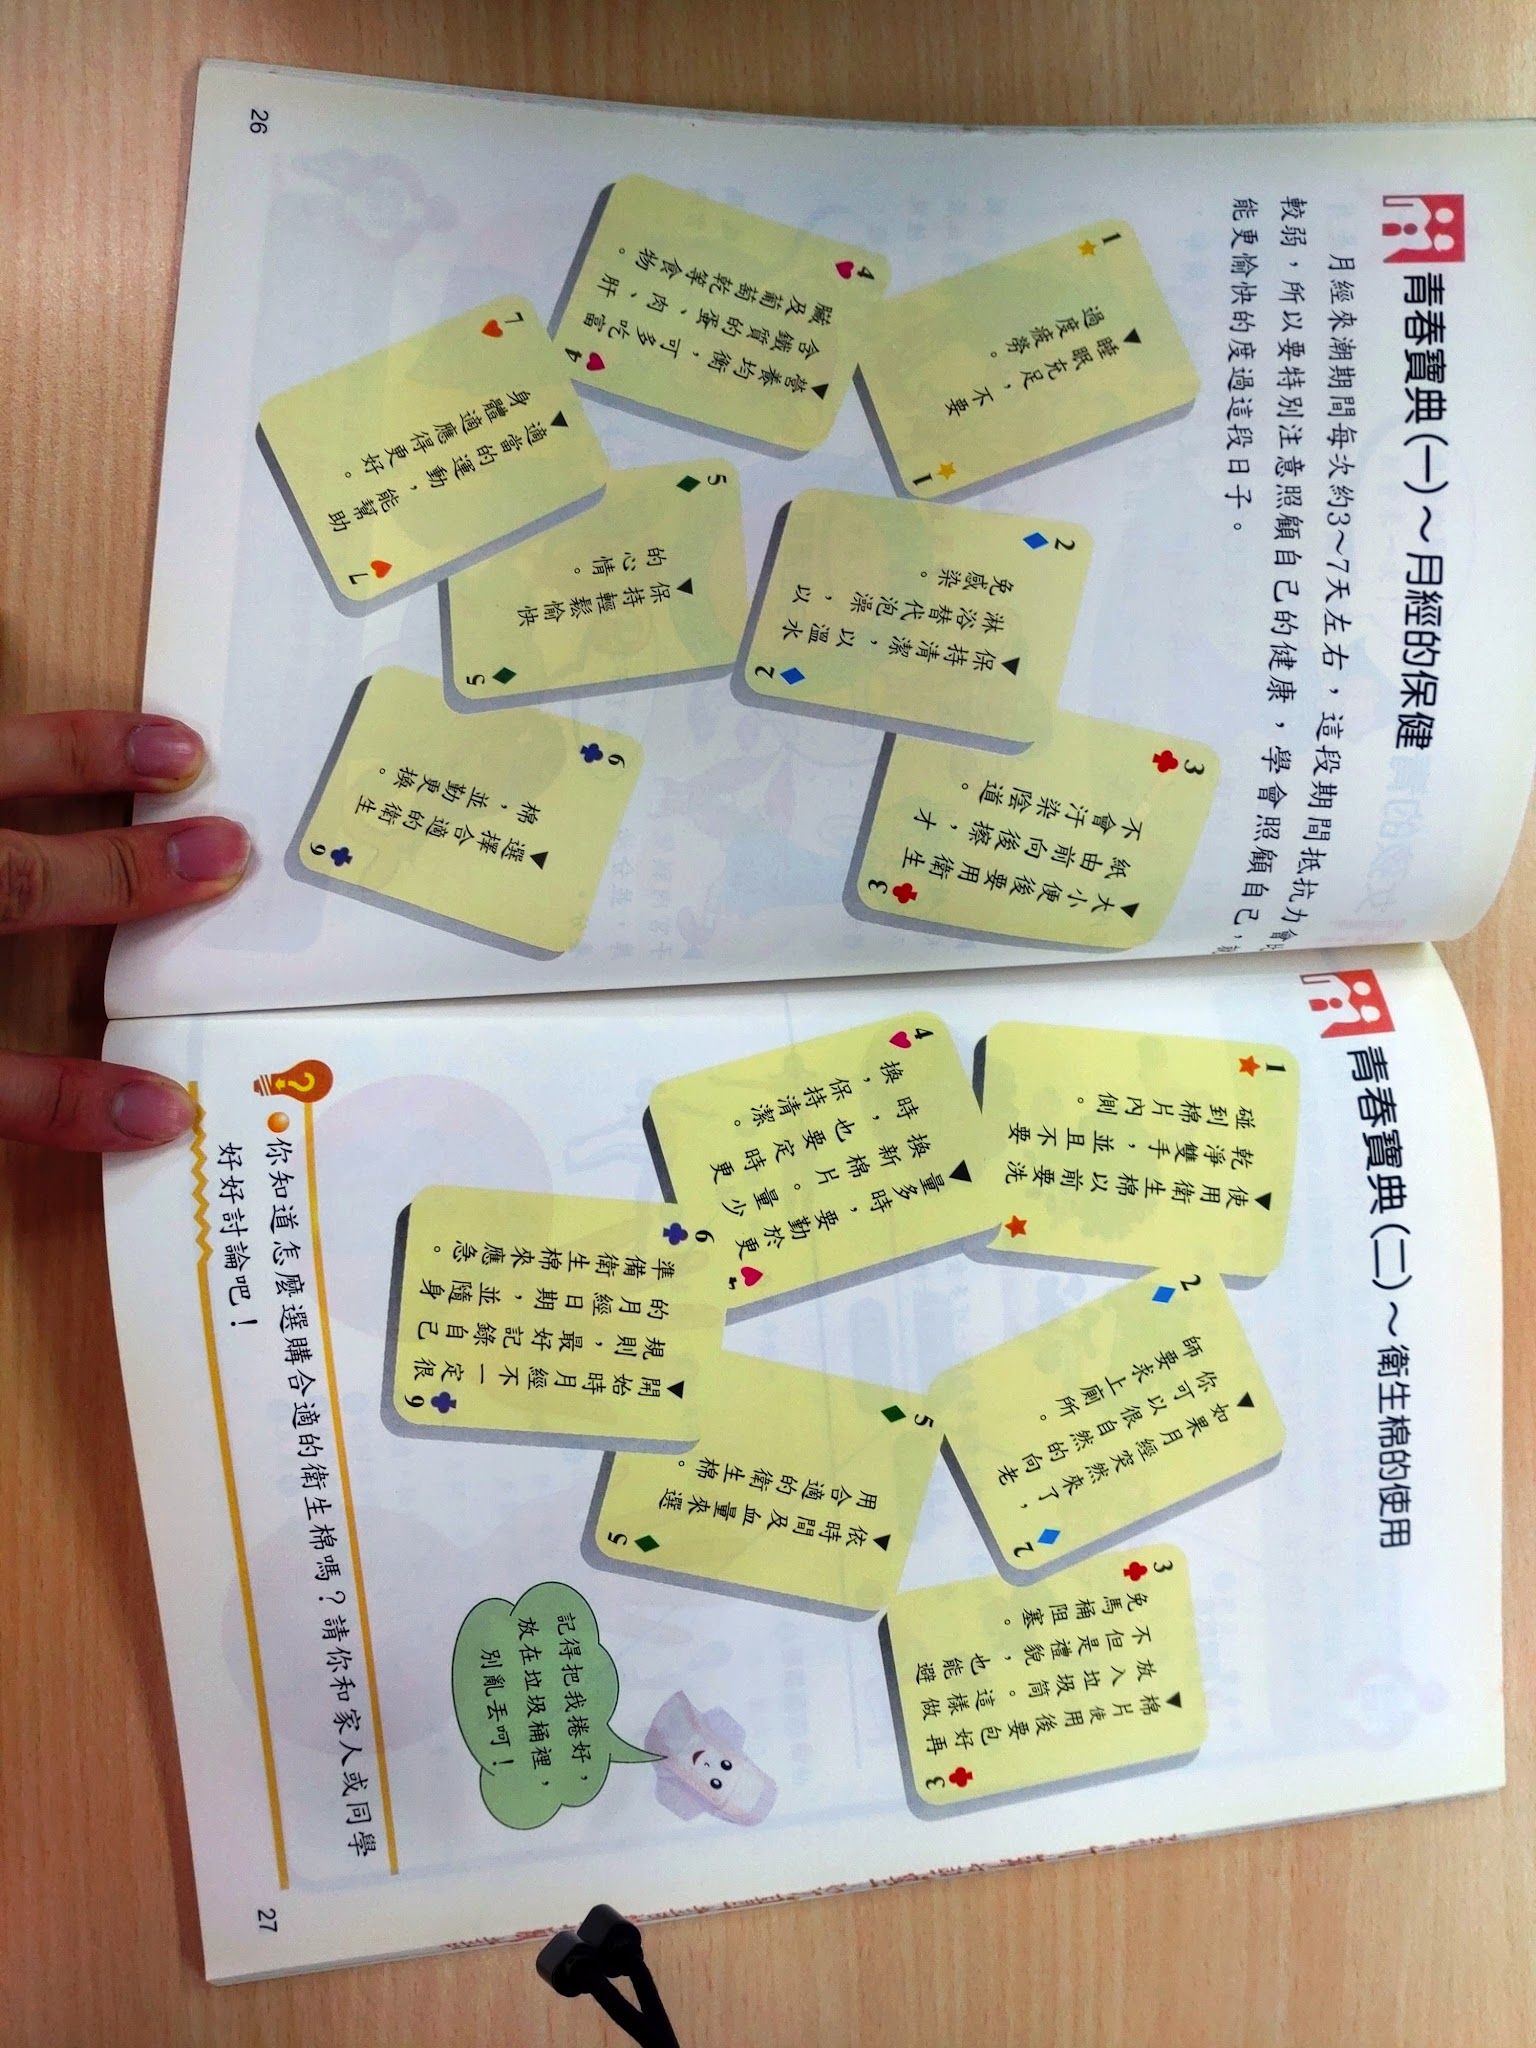 青春寶典(一)～月經的保健
月經來潮期間每次約3～7天左右，這段期間抵抗力會比
較弱，所以要特別注意照顧自己的健康，學會照顧自己，就
能更愉快的度過這段日子。
1
▼睡眠充足，不要
過度疲勞。
1
2
▼保持清潔，以溫水
淋浴替代泡澡，以
免感染。
2
3
▼大小便後要用衛生
紙由前向後擦，才
不會汙染陰道。
3
4
▼營養均衡，可多吃富
含鐵質的蛋、肉、肝
臟及葡萄乾等食物。
4
5
▼保持輕鬆愉快
的心情。
5
6
▼選擇合適的衛生
棉，並勤更換。
6
7
▼適當的運動，能幫助
身體適應得更好。
7
26
青春寶典(二)～衛生棉的使用
1
▼使用衛生棉以前要洗
乾淨雙手，並且不要
碰到棉片內側。
2
▼如果月經突然來了，
你可以很自然的向老
師要求上廁所。
2
3
▼棉片使用後要包好再
放入垃圾筒。這樣做
不但是禮貌，也能避
免馬桶阻塞。
3
4
▼量多時，要勤於更
換新棉片。量少
時，也要定時更
換，保持清潔。
4
5
▼依時間及血量來選
用合適的衛生棉。
5
6
▼開始時月經不一定很
規則，最好記錄自己
的月經日期，並隨身
準備衛生棉來應急。
6
記得把我捲好，
放在垃圾桶裡，
別亂丟呵！
?
你知道怎麼選購合適的衛生棉嗎？請你和家人或同學
好好討論吧！
27